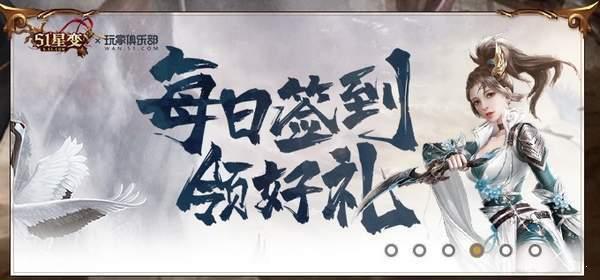 51星变
×
玩家俱乐部
WAN.51.COM
每日签到
领好礼